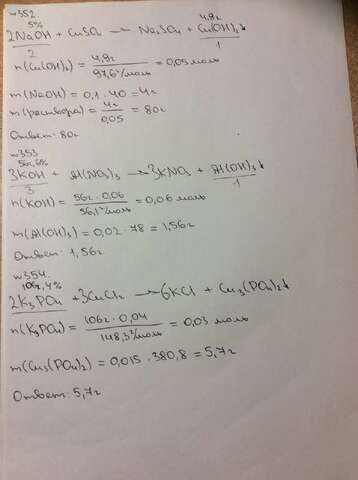 №352
5% 4,9г
2NaOH + CuSO₄ → Na₂SO₄ + Cu(OH)₂↓
2 1
n(Cu(OH)₂) = 4,9г / 97,6г/моль = 0,05 моль
m(NaOH) = 0,1 · 40 = 4г
m(раствора) = 4г / 0,05 = 80г
Ответ: 80г
№353
56г, 6%
3KOH + Al(NO₃)₃ → 3KNO₃ + Al(OH)₃↓
3 1
n(KOH) = 56г · 0,06 / 56,1г/моль = 0,06 моль
m(Al(OH)₃) = 0,02 · 78 = 1,56г
Ответ: 1,56г
№354
106г, 4%
2K₃PO₄ + 3CuCl₂ → 6KCl + Cu₃(PO₄)₂↓
n(K₃PO₄) = 106г · 0,04 / 148,3г/моль = 0,03 моль
m(Cu₃(PO₄)₂) = 0,015 · 380,8 = 5,7г
Ответ: 5,7г